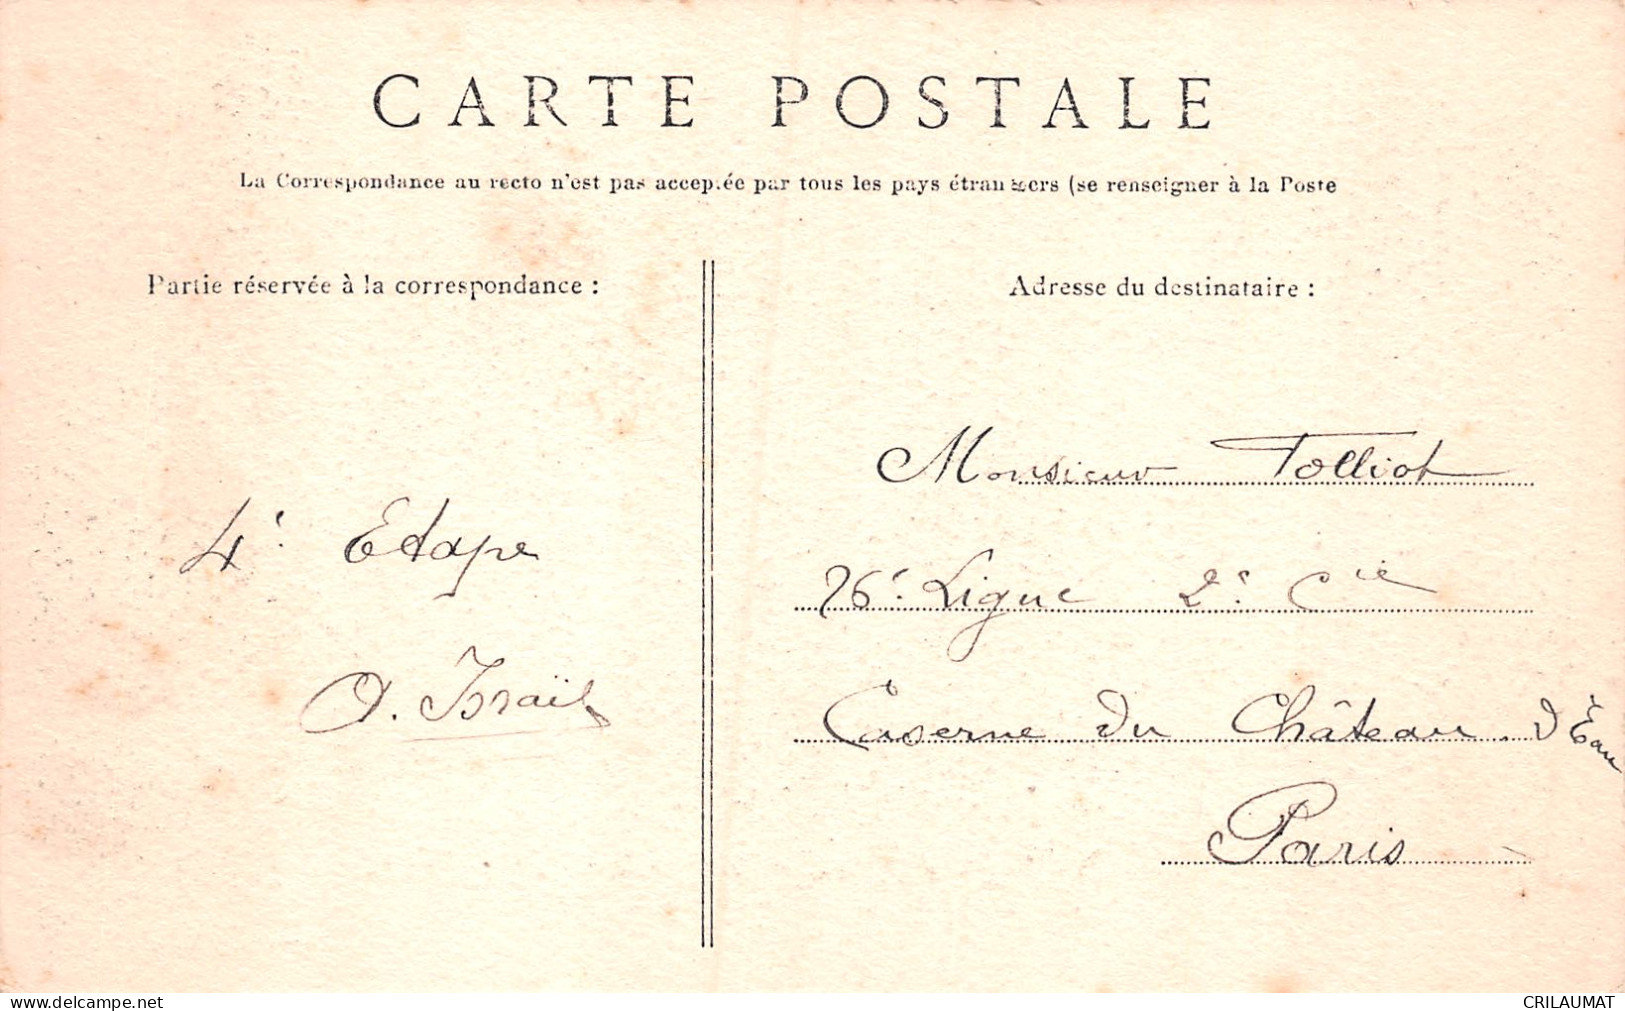 CARTE POSTALE
La Correspondance au recto n'est pas acceptée par tous les pays étrangers (se renseigner à la Poste
Partie réservée à la correspondance :
Adresse du destinataire :
4e Etape
Monsieur Tolliot
76e Ligne 2e Cie
Caserne du Château d'Eau
Paris
www.delcampe.net
CRILAUMAT